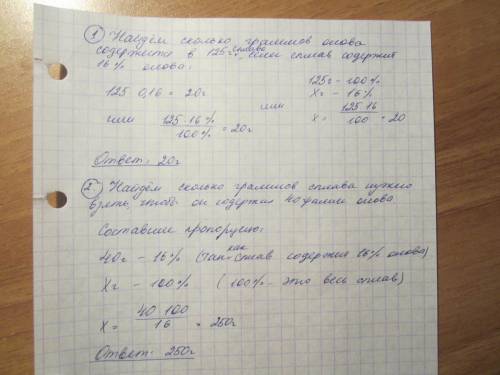 ① Найдём сколько граммов олова
содержится в 125г. сплава, если сплав содержит
16% олова:
125 0,16 = 20г
125г - 100%
Xг - 16%
или
X = 125·16 / 100 = 20
или 125·16% / 100% = 20г
Ответ: 20г
② Найдём сколько граммов сплава нужно
взять, чтобы он содержал 40 грамм олова.
Составим пропорцию:
40г - 16% (так как сплав содержит 16% олова)
Xг - 100% (100% - это весь сплав)
X = 40 100 / 16 = 250г
Ответ: 250г